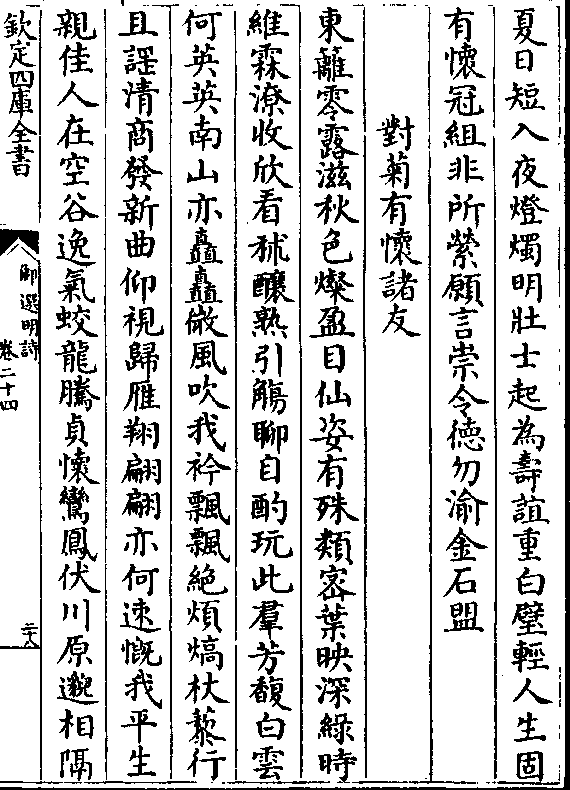 夏日短入夜燈燭明壯士起為壽誼重白璧輕人生固
有懷冠組非所縈願言崇令德勿渝金石盟
對菊有懷諸友
東籬零露滋秋色燦盈目仙姿有殊類宻葉映深綠時
維霖潦收欣看秫釀熟引觴聊自酌玩此羣芳馥白雲
何英英南山亦矗矗微風吹我衿飄飄絶煩熇杖藜行
且謡清商發新曲仰視歸雁翔翩翩亦何速慨我平生
親佳人在空谷逸氣蛟龍騰貞懷鸞鳳伏川原邈相隔
欽定四庫全書
御選明詩
卷二十四
二十八